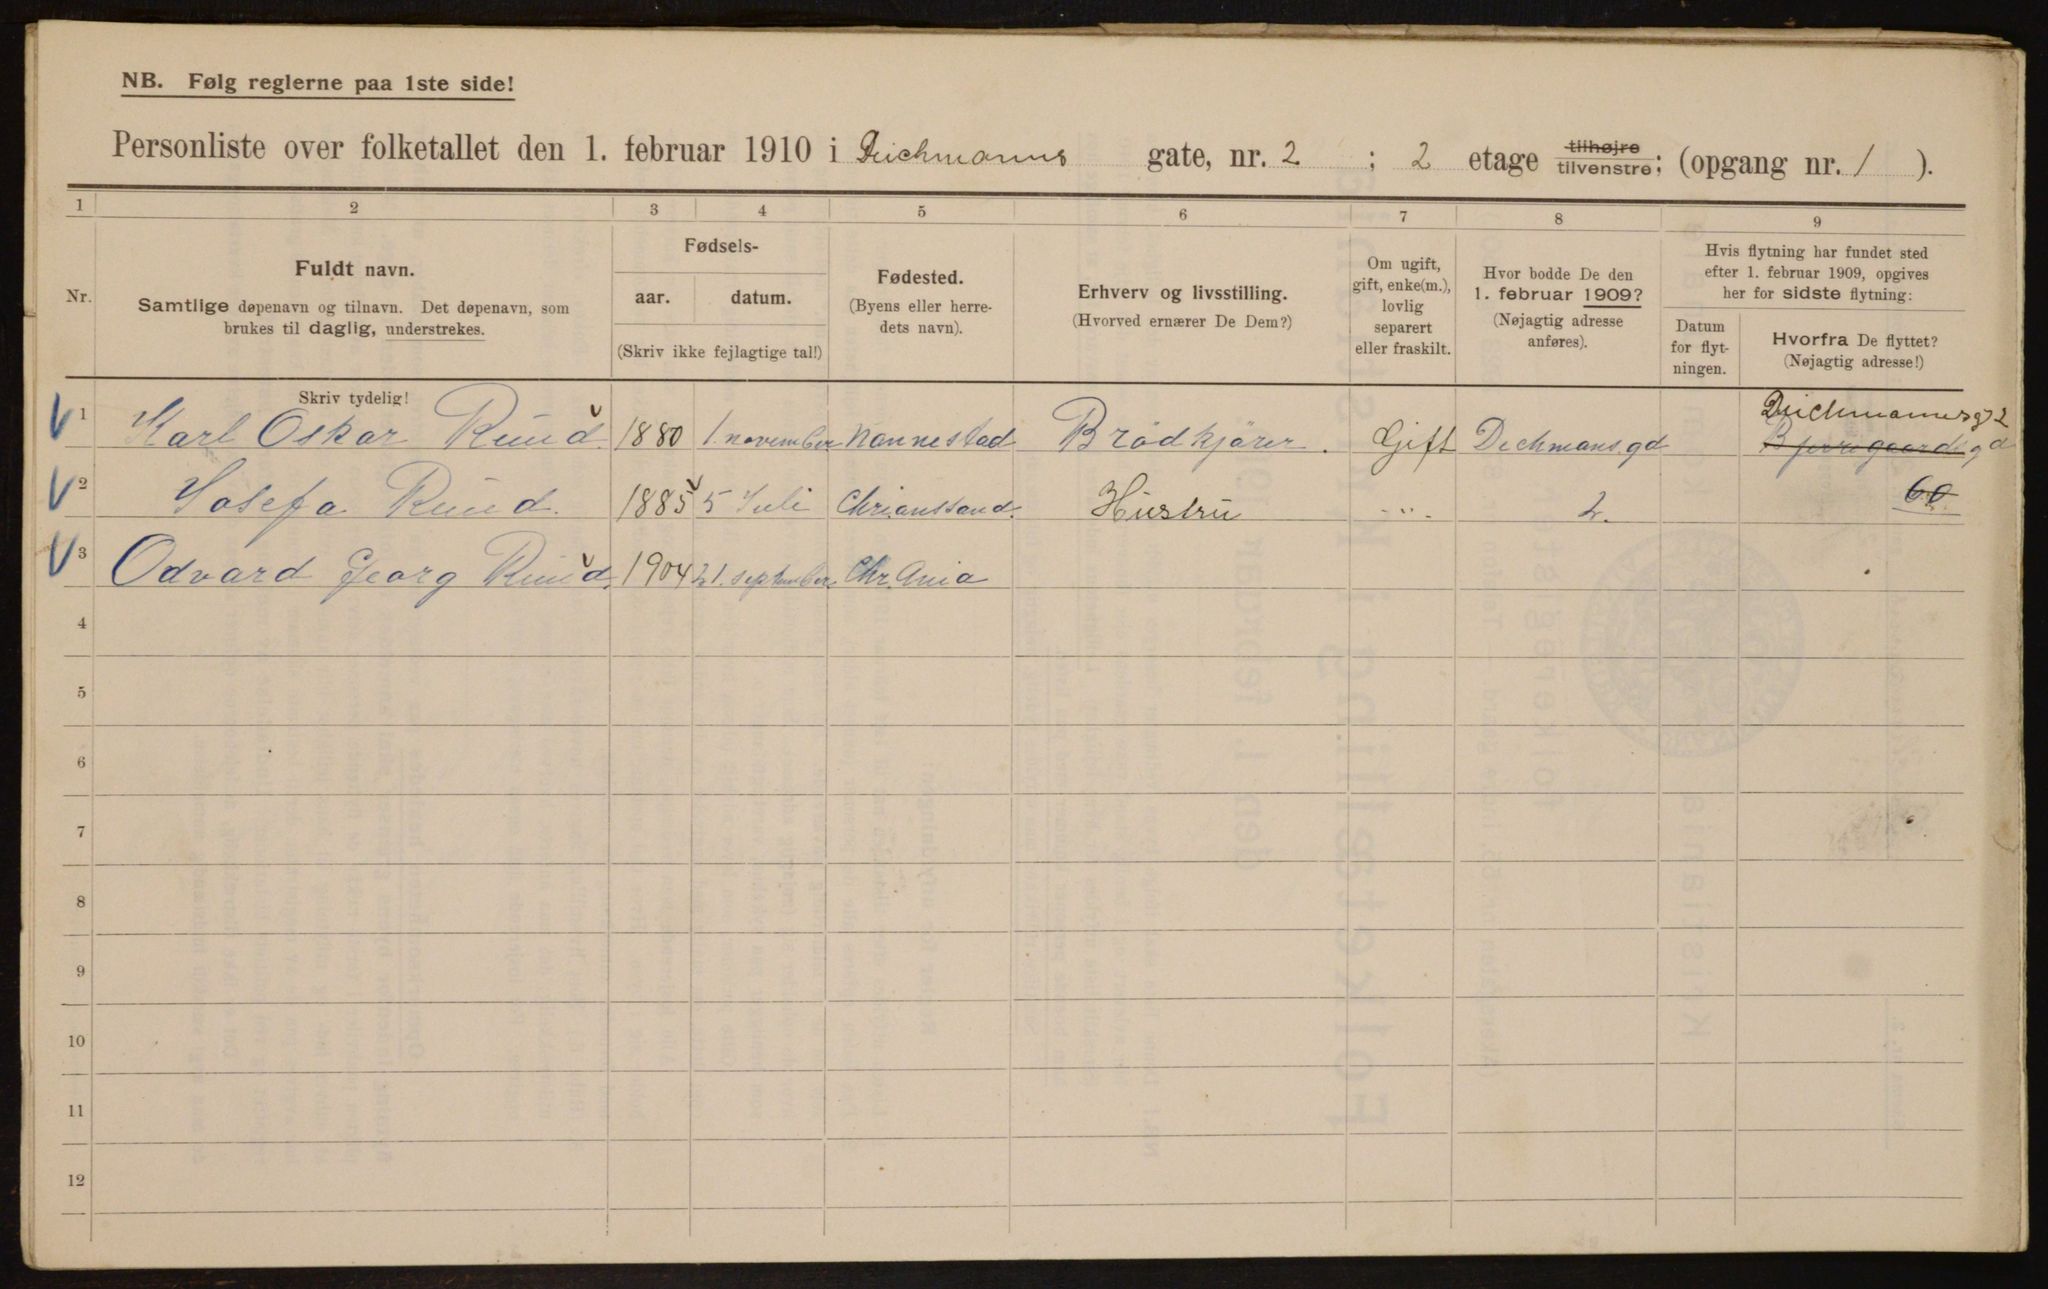 NB. Følg reglerne paa 1ste side!
Personliste over folketallet den 1. februar 1910 i Deichmanns gate, nr. 2 ; 2 etage tilhøjre tilvenstre; (opgang nr. 1 ).
1 2 3 4 5 6 7 8 9
Nr.
Fuldt navn.
Samtlige døpenavn og tilnavn. Det døpenavn, som
brukes til daglig, understrekes.
Fødsels-
aar. datum.
(Skriv ikke fejlagtige tal!)
Fødested.
(Byens eller herre-
dets navn).
Erhverv og livsstilling.
(Hvorved ernærer De Dem?)
Om ugift,
gift, enke(m.),
lovlig
separert
eller fraskilt.
Hvor bodde De den
1. februar 1909?
(Nøjagtig adresse
anføres).
Hvis flytning har fundet sted
efter 1. februar 1909, opgives
her for sidste flytning:
Datum
for flyt-
ningen.
Hvorfra De flyttet?
(Nøjagtig adresse!)
Skriv tydelig!
Deichmannsg 2
1 Karl Oskar Ruud 1880 1. november Nannestad Brödkjörer. Gift Dechmans.gd
2 Josefa Ruud. 1885 5 Juli Chrianssand. Hustru -"- 2. 60
3 Odvard Georg Ruud. 1904 21. september Chr.Ania
4
5
6
7
8
9
10
11
12